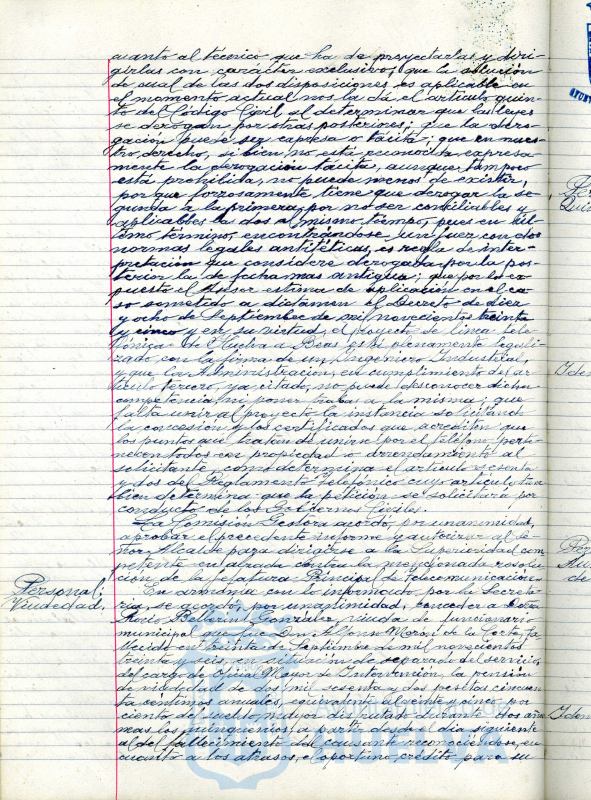 cuanto al técnico que ha de proyectarlas y diri-
girlas con carácter exclusivo; que la solución
de cual de las dos disposiciones es aplicable en
el momento actual nos la dá el artículo quin-
to del Código Civil al determinar que las leyes
se derogan por otras posteriores; que la dero-
gación puede ser expresa o tácita, que en nues-
tro derecho, si bien no está reconocida expresa-
mente la derogación tácita, aunque tampoco
está prohibida, no puede menos de existir,
porque forzosamente tiene que derogar la se-
gunda a la primera, por no ser conciliables ni
aplicables las dos al mismo tiempo, pues en úl-
timo término, encontrándose un Juez con dos
normas legales antitéticas, es regla de inter-
pretación que considere derogada por la pos-
terior la de fecha mas antigua; que por lo ex-
puesto el Asesor estima de aplicación en el ca-
so sometido a dictamen el Decreto de diez
y ocho de Septiembre de mil novecientos treinta
y cinco y en su virtud, el proyecto de línea tele-
fónica de Huelva a Beas está plenamente legali-
zado con la firma de un Ingeniero Industrial,
y que la Administración, en cumplimiento del ar-
tículo tercero, ya citado, no puede desconocer dicha
competencia ni poner trabas a la misma; que
falta unir al proyecto la instancia solicitando
la concesión y los certificados que acrediten que
los puntos que tratan de unirse por el teléfono, perte-
necen todos en propiedad o arrendamiento al
solicitante, como determina el artículo sesenta
y dos del Reglamento Telefónico cuyo artículo tam-
bien determina que la petición se solicitará por
conducto de los Gobiernos Civiles.
La Comisión Gestora acordó, por unanimidad,
aprobar el precedente informe y autorizar al se-
ñor Alcalde para dirigirse a la Superioridad com-
petente en alzada contra la mencionada resolu-
ción de la Jefatura Principal de Telecomunicación.
Personal.
Viudedad.
En armonía con lo informado por la Secreta-
ría, se acordó, por unanimidad, conceder a
Rocío Bellerín González, viuda de funcionario
municipal que fué Don Alfonso Moral de la Corte, fa-
llecido en treinta de Septiembre de mil novecientos
treinta y seis, en situación de separado del servicio
del cargo de Oficial Mayor de Intervención, la pensión
de viudedad de dos mil sesenta y dos pesetas cincuen-
ta céntimos anuales, equivalente al veinticinco por
ciento del sueldo mayor disfrutado durante dos años
mas los quinquenios, a partir desde el dia siguiente
al del fallecimiento del causante, reconociéndose, en
cuanto a los atrasos, el oportuno crédito para su
Ayuntamiento de
HUELVA